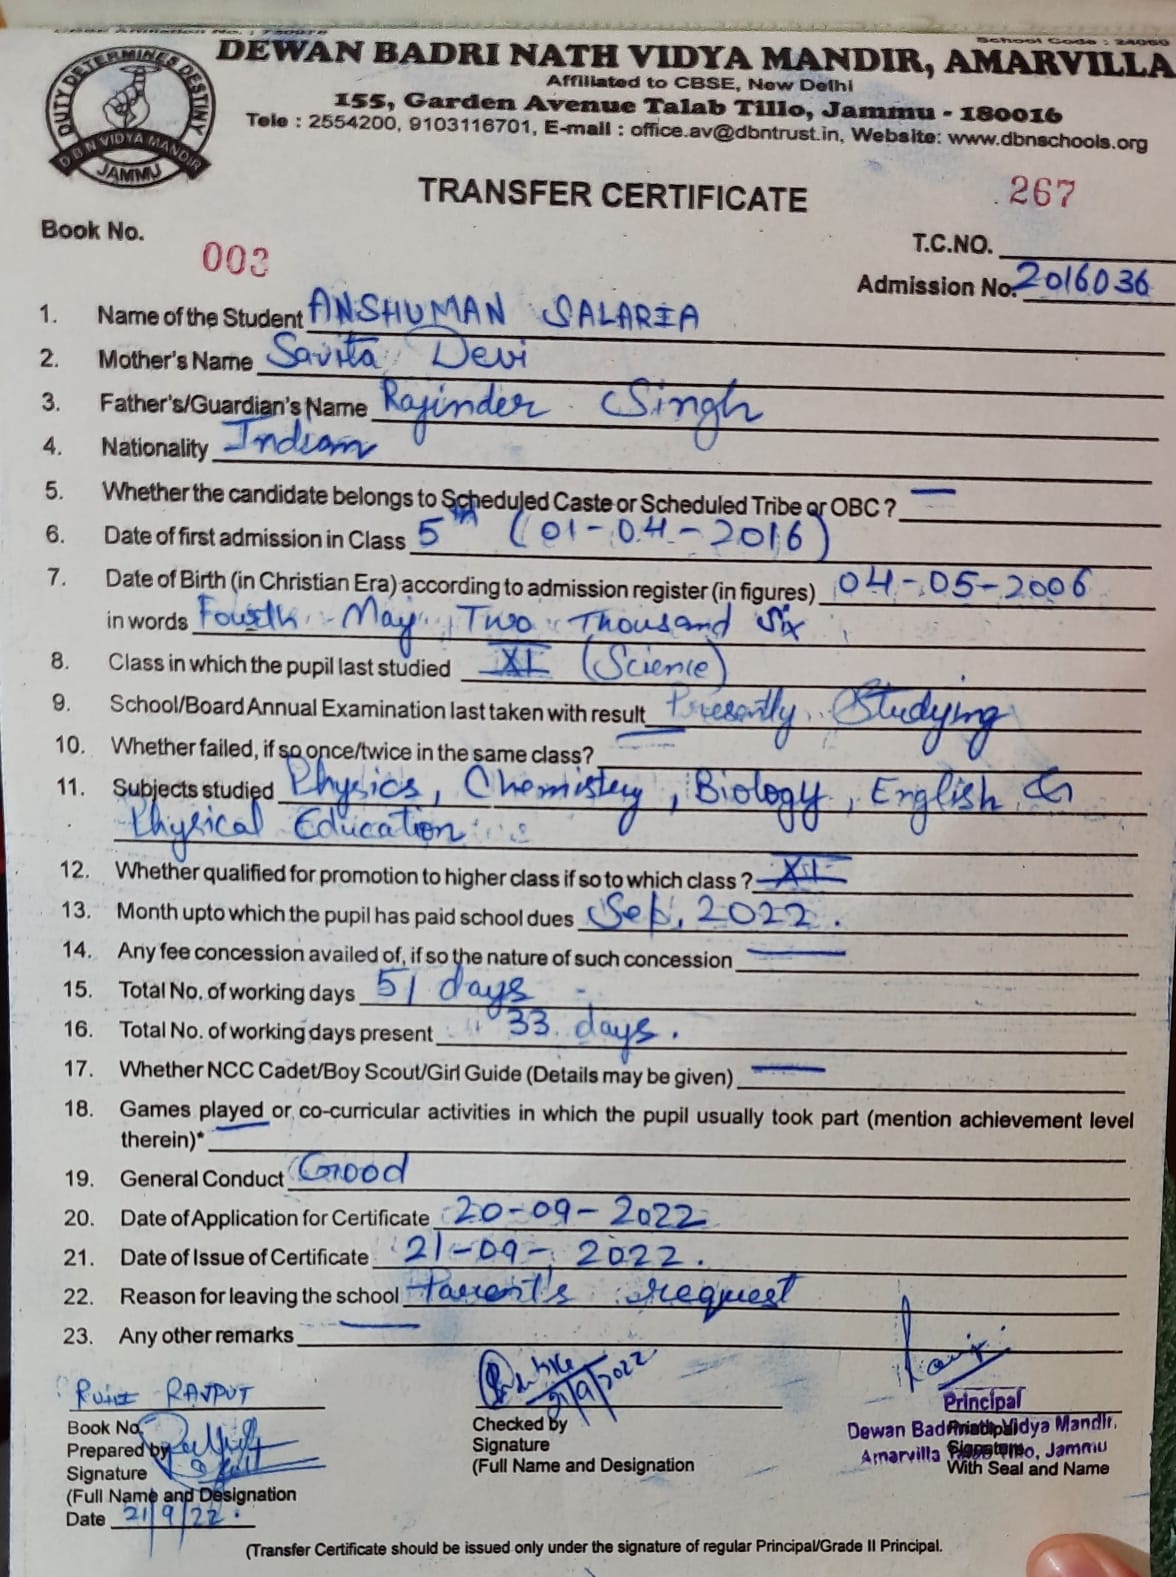 School Code : 24060
DUTY DETERMINES DESTINY
D B N VIDYA MANDIR
JAMMU
DEWAN BADRI NATH VIDYA MANDIR, AMARVILLA
Affiliated to CBSE, New Delhi
155, Garden Avenue Talab Tillo, Jammu - 180016
Tele : 2554200, 9103116701, E-mail : office.av@dbntrust.in, Website: www.dbnschools.org
TRANSFER CERTIFICATE
267
Book No. 003
T.C.NO.
Admission No. 2016036
1. Name of the Student ANSHUMAN SALARIA
2. Mother's Name Savita Devi
3. Father's/Guardian's Name Rajinder Singh
4. Nationality Indian
5. Whether the candidate belongs to Scheduled Caste or Scheduled Tribe or OBC ? —
6. Date of first admission in Class 5th (01-04-2016)
7. Date of Birth (in Christian Era) according to admission register (in figures) 04-05-2006
in words Fourth May Two Thousand Six
8. Class in which the pupil last studied XI (Science)
9. School/Board Annual Examination last taken with result Presently Studying
10. Whether failed, if so once/twice in the same class? —
11. Subjects studied Physics, Chemistry, Biology, English &
Physical Education
12. Whether qualified for promotion to higher class if so to which class ? XI
13. Month upto which the pupil has paid school dues Sep, 2022.
14. Any fee concession availed of, if so the nature of such concession —
15. Total No. of working days 51 days
16. Total No. of working days present 33 days.
17. Whether NCC Cadet/Boy Scout/Girl Guide (Details may be given) —
18. Games played or co-curricular activities in which the pupil usually took part (mention achievement level
therein)* —
19. General Conduct Good
20. Date of Application for Certificate 20-09-2022
21. Date of Issue of Certificate 21-09-2022.
22. Reason for leaving the school Parent's request
23. Any other remarks —
RAJPUT
21/9/2022
Book No.
Prepared by
Signature
(Full Name and Designation
Date 21/9/22.
Checked by
Signature
(Full Name and Designation
Principal
Dewan Badri Nath Vidya Mandir,
Amarvilla Talab Tillo, Jammu
Principal
Signature
With Seal and Name
(Transfer Certificate should be issued only under the signature of regular Principal/Grade II Principal.